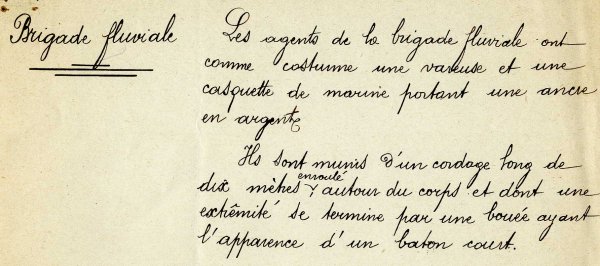 Brigade fluviale
Les agents de la brigade fluviale ont
comme costume une vareuse et une
casquette de marine portant une ancre
en argent.
Ils sont munis d'un cordage long de
dix mètres enroulé autour du corps et dont une
extrêmité se termine par une bouée ayant
l'apparence d'un baton court.